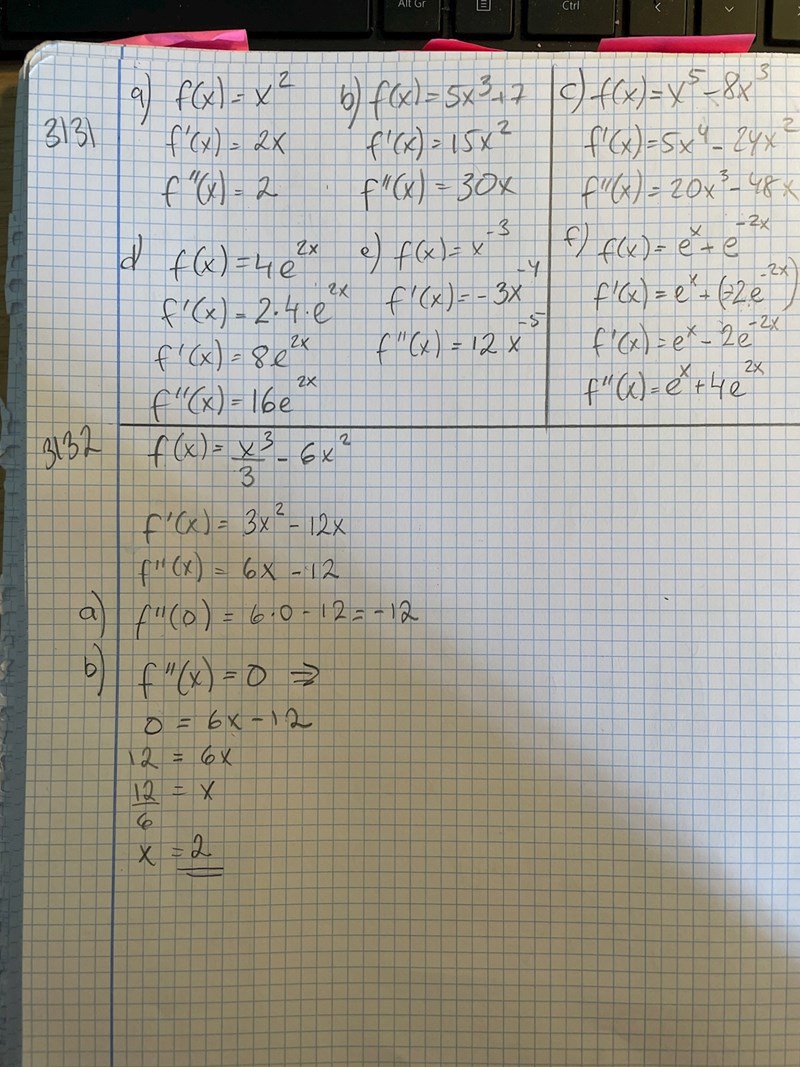 Alt Gr
Ctrl
3131
a) f(x) = x²
f'(x) = 2x
f''(x) = 2
b) f(x) = 5x³+7
f'(x) = 15x²
f''(x) = 30x
c) f(x) = x⁵ - 8x³
f'(x) = 5x⁴ - 24x²
f''(x) = 20x³ - 48x
d) f(x) = 4e^2x
f'(x) = 2·4·e^2x
f'(x) = 8e^2x
f''(x) = 16e^2x
e) f(x) = x^-3
f'(x) = -3x^-4
f''(x) = 12x^-5
f) f(x) = e^x + e^-2x
f'(x) = e^x + (-2e^-2x)
f'(x) = e^x - 2e^-2x
f''(x) = e^x + 4e^2x
3132
f(x) = x³/3 - 6x²
f'(x) = 3x² - 12x
f''(x) = 6x - 12
a) f''(0) = 6·0 - 12 = -12
b) f''(x) = 0 ⇒
0 = 6x - 12
12 = 6x
12/6 = x
x = 2